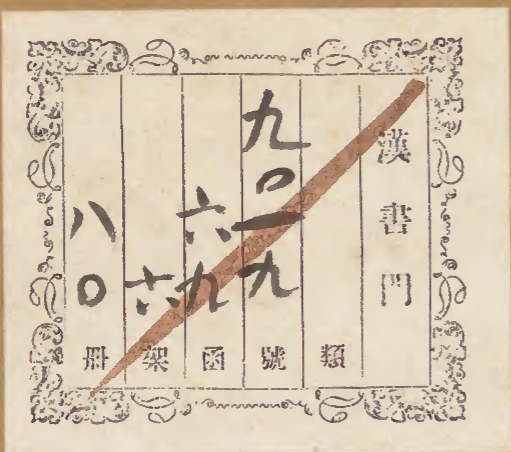 漢書門
類
九〇一九號
六九函
六架
八〇冊